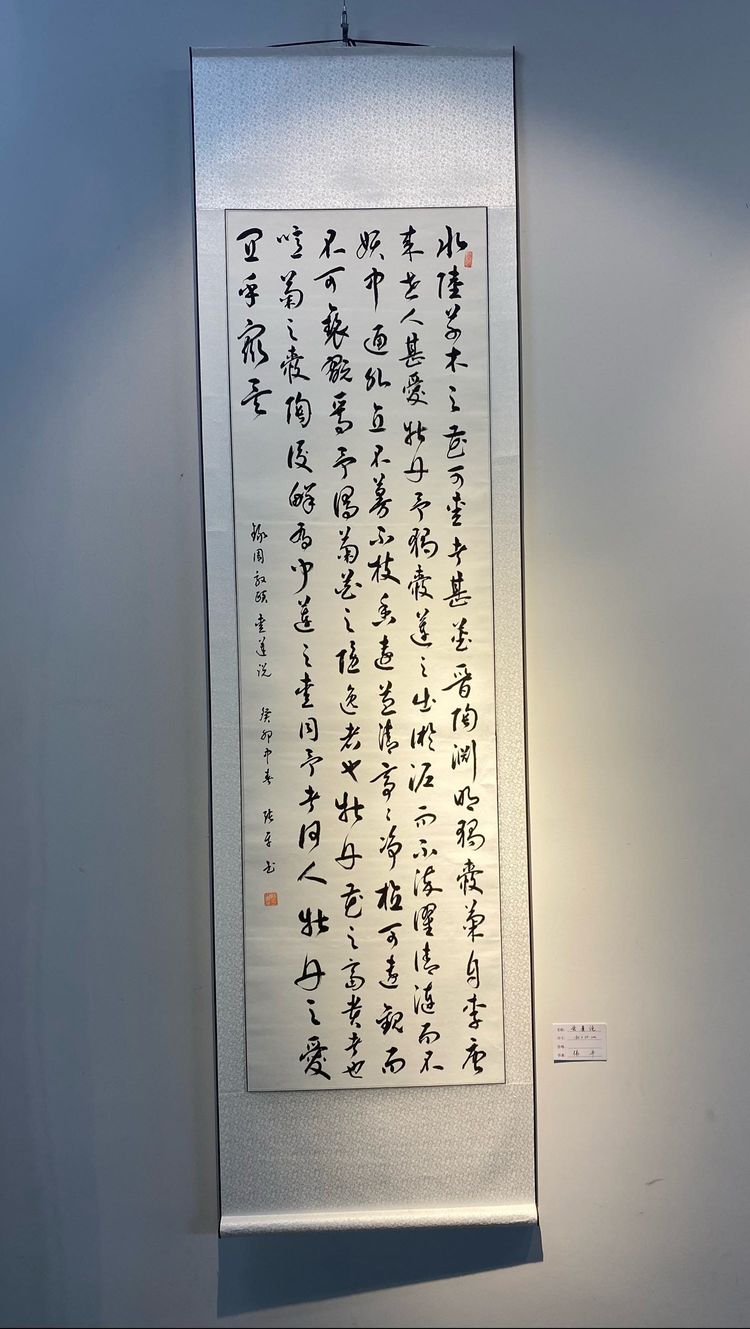 水陸草木之花可愛者甚蕃晋陶渊明獨愛菊自李唐
来世人甚愛牡丹予獨愛蓮之出淤泥而不染濯清漣而不
妖中通外直不蔓不枝香遠益清亭〻净植可遠觀而
不可褻翫焉予謂菊花之隐逸者也牡丹花之富贵者也
噫菊之愛陶後鮮有闻蓮之愛同予者何人牡丹之愛
宜乎眾矣
録周敦頤愛蓮说 癸卯中春 张平书
爱蓮说
张平